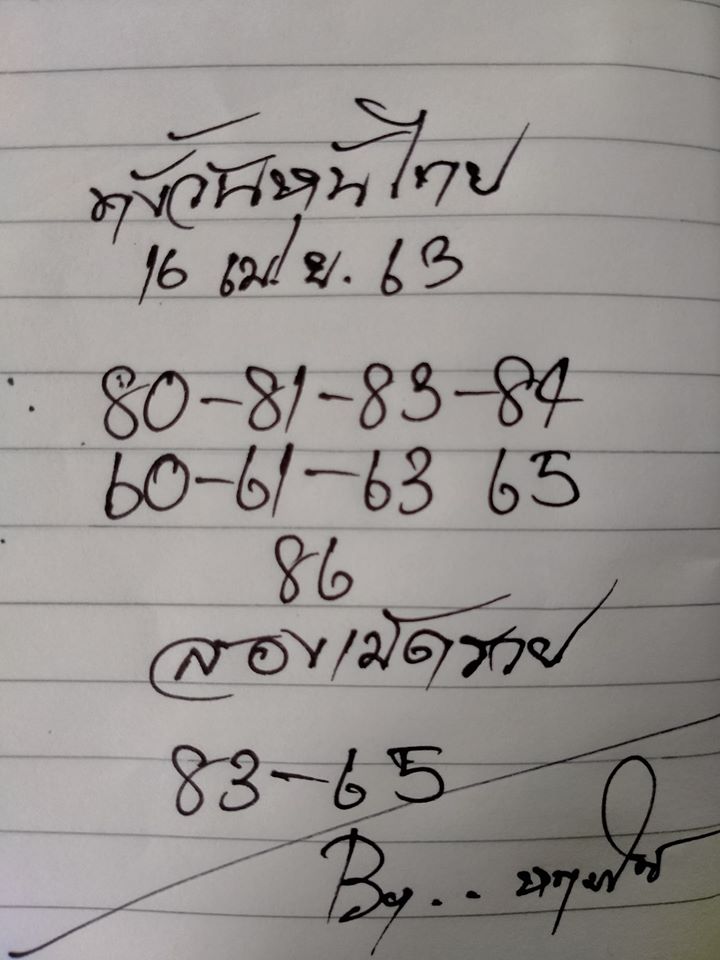 ทั้งวันหุ้นไทย
16 เม.ย. 63
80-81-83-84
60-61-63 65
86
สองเม็ดรวย
83-65
By..